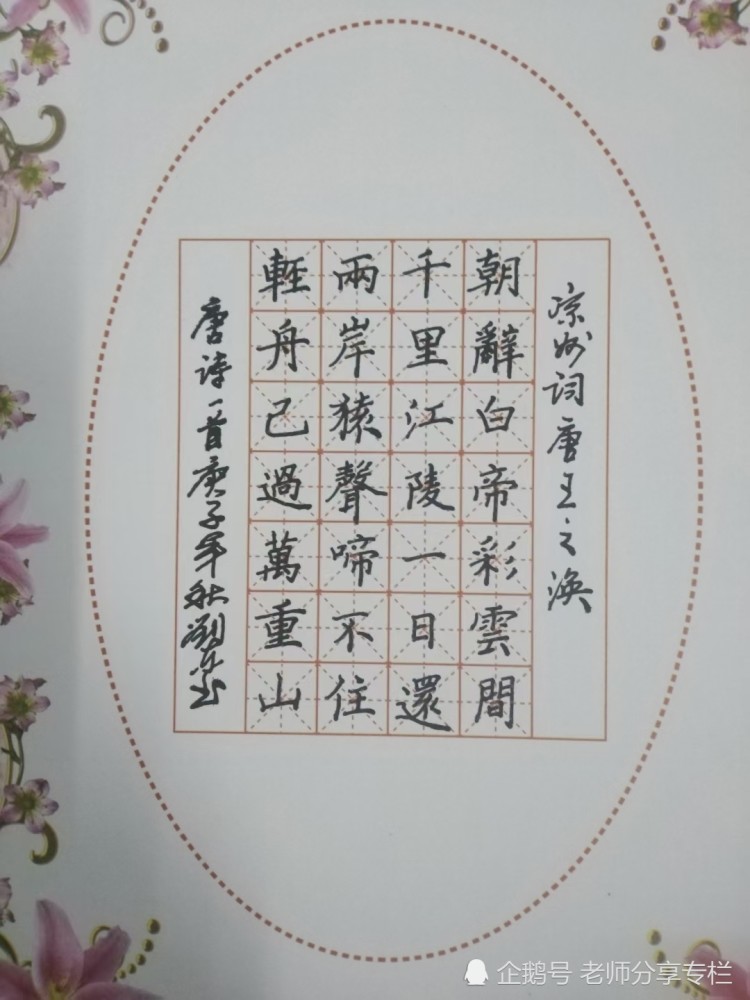 凉州词唐王之渙
朝辭白帝彩雲間
千里江陵一日還
兩岸猿聲啼不住
輕舟己過萬重山
唐诗一首庚子年秋
企鹅号 老师分享专栏